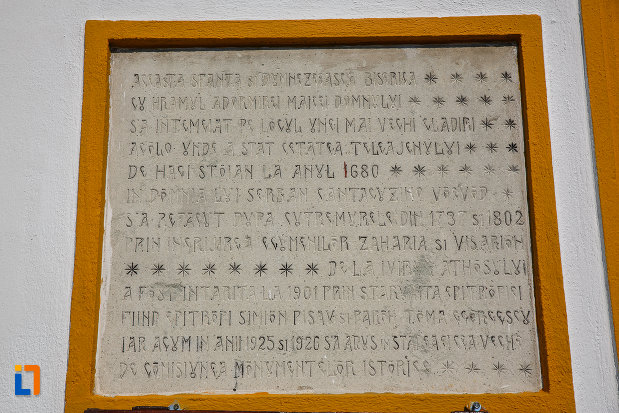 ACEASTA SFANTA SI DUMNEZEIASCA BISERICA
CU HRAMUL ADORMIREI MAICEI DOMNULUI
S'A INTEMEIAT PE LOCUL UNEI MAI VECHI CLADIRI
ACOLO UNDE A STAT CETATEA TELEAJENULUI
DE HAGI STOIAN LA ANUL 1680
IN DOMNIA LUI SERBAN CANTACUZINO VOEVOD
S'A REFACUT DUPA CUTREMURELE DIN 1737 SI 1802
PRIN INGRIJIREA EGUMENILOR ZAHARIA SI VISARION
DE LA IVIRU ATHOSULUI
A FOST INTARITA LA 1901 PRIN STARUINTA EPITROPIEI
FIIND EPITROPI SIMION PISAU SI PAROH TOMA GEORGESCU
IAR ACUM IN ANII 1925 SI 1926 S'A ADUS IN STAREA CEA VECHE
DE COMISIUNEA MONUMENTELOR ISTORICE